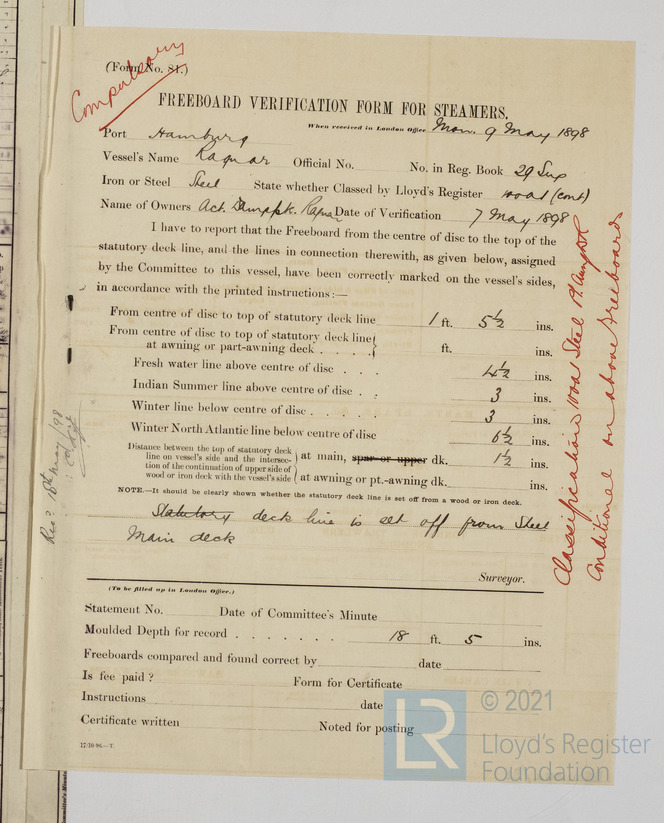 (Form No. 81.)
Compulsory
FREEBOARD VERIFICATION FORM FOR STEAMERS.
When received in London Office Mon. 9 May 1898
Port Hamburg
Vessel's Name Ragnar Official No. No. in Reg. Book 29 Sup
Iron or Steel Steel State whether Classed by Lloyd's Register 100A1 (cont)
Name of Owners Act. Dampfsk. Ragnar Date of Verification 7 May 1898
I have to report that the Freeboard from the centre of disc to the top of the
statutory deck line, and the lines in connection therewith, as given below, assigned
by the Committee to this vessel, have been correctly marked on the vessel's sides,
in accordance with the printed instructions:—
From centre of disc to top of statutory deck line 1 ft. 5½ ins.
From centre of disc to top of statutory deck line
at awning or part-awning deck . . . . ft. ins.
Fresh water line above centre of disc . . . 4½ ins.
Indian Summer line above centre of disc . . 3 ins.
Winter line below centre of disc . . . . . 3 ins.
Winter North Atlantic line below centre of disc 6½ ins.
Distance between the top of statutory deck
line on vessel's side and the intersec-
tion of the continuation of upper side of
wood or iron deck with the vessel's side
at main, spar or upper dk. 1½ ins.
at awning or pt.-awning dk. ins.
NOTE.—It should be clearly shown whether the statutory deck line is set off from a wood or iron deck.
Statutory deck line is set off from Steel
Main deck
Surveyor.
(To be filled up in London Office.)
Statement No. Date of Committee's Minute
Moulded Depth for record . . . . . . . 18 ft. 5 ins.
Freeboards compared and found correct by date
Is fee paid? Form for Certificate
Instructions date
Certificate written Noted for posting
17·10·96.—T.
Classification 100A1 Steel
conditional on above freeboards
Rec? 18th May/98
© 2021
LR
Lloyd's Register
Foundation
Committee's Minute